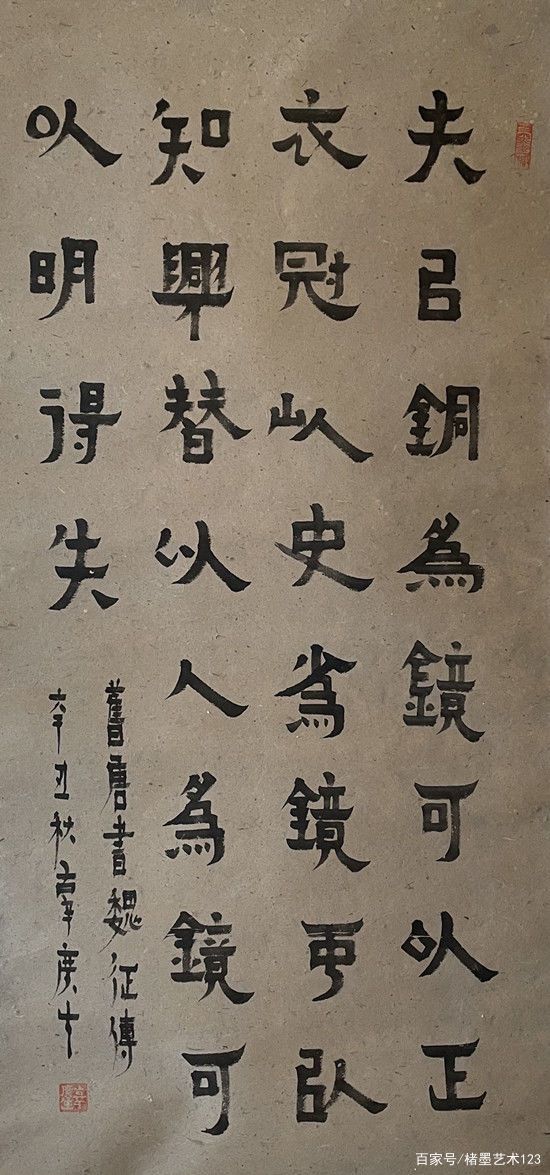 夫㠯銅為鏡可以正
衣冠以史為鏡可以
知興替以人為鏡可
以明得失
舊唐書魏征傳
辛丑秋
百家号/楮墨艺术123